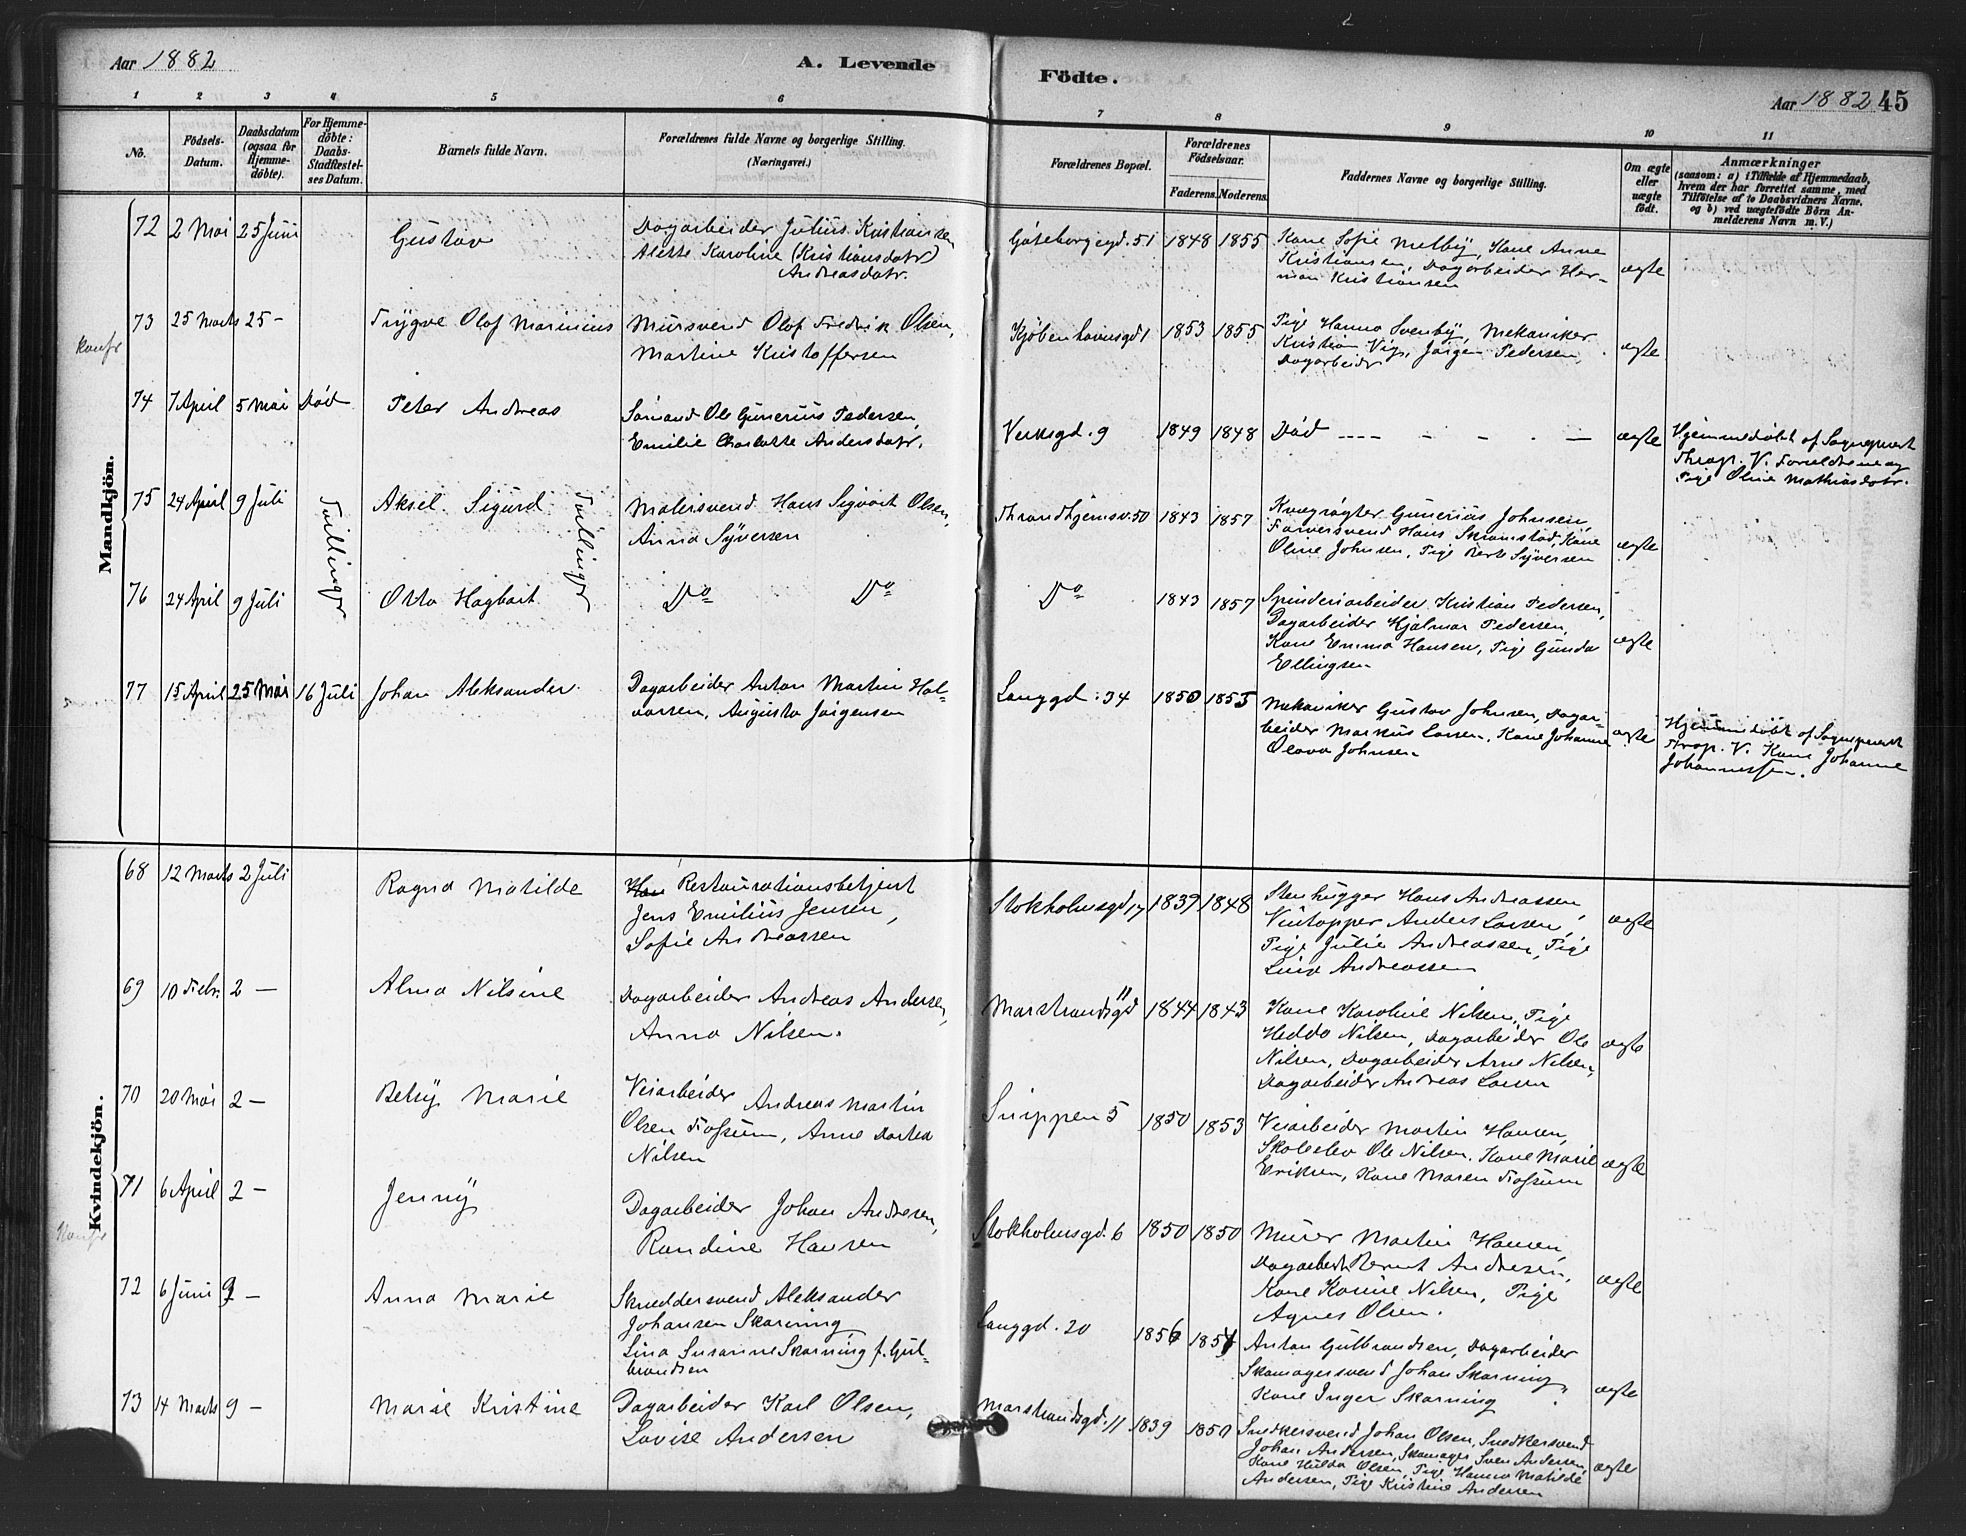 Aar 1882
A. Levende
Födte.
Aar 1882 45
1 2 3 4 5 6 7 8 9 10 11
No.
Födsels-
Datum.
Daabsdatum
(ogsaa for
Hjemme-
döbte).
For Hjemme-
döbte:
Daabs-
Stadfæstel-
ses Datum.
Barnets fulde Navn.
Forældrenes fulde Navne og borgerlige Stilling.
(Næringsvei.)
Forældrenes Bopæl.
Forældrenes
Födselsaar.
Faderens. Moderens.
Faddernes Navne og borgerlige Stilling.
Om ægte
eller
uægte
födt.
Anmærkninger
(saasom: a) i Tilfælde af Hjemmedaab,
hvem der har forrettet samme, med
Tilföielse af to Daabsvidners Navne.
og b) ved uægtefödte Börn An-
melderens Navn m. V.)
Mandkjön.
72 2 Mai 25 Juni
Gustav
Dagarbeider Julius Kristiansen
Alette Karoline (Kristiansdatr)
Andreasdatr.
Göteborggd. 51 1848 1855
Kone Sofie Melby, Kone Anne
Kristiansen, Dagarbeider Her-
man Kristiansen
ægte
Konf.
73 25 Marts 25 -
Trygve Olaf Marinius
Mursvend Olaf Fredrik Olsen,
Martine Kristoffersen
Kjöbenhavnsgd 1 1853 1855
Pige Hanna Svenby, Mekaniker
Kristian Vig, Jörgen Pedersen,
Dagarbeider
ægte
74 7 April 5 Mai Död
Peter Andreas
Sömand Ole Gunerius Pedersen,
Emilie Charlotte Andersdatr.
Verksgd. 9 1849 1848
Död - - - - - - - -
ægte
Hjemmedöbt af Sogneprest
Thrap. V. Forældrene og
Pige Oline Mathiasdatr.
75 24 April 9 Juli
Tvillinger
Aksel Sigurd
Tvillinger
Malersvend Hans Sigvart Olsen,
Anna Syversen
Throndhjemsv. 50 1843 1857
Kvægrögter Gunerius Johnsen,
Farversvend Hans Skramstad, Kone
Oline Johnsen, Pige Berte Syversen
ægte
76 24 April 9 Juli
Otto Hagbart
Do Do
Do 1843 1857
Spinderiarbeider Kristian Pedersen,
Dagarbeider Hjalmar Pedersen,
Kone Emma Hansen, Pige Gunda
Ellingsen
ægte
77 15 April 25 Mai 16 Juli
Johan Aleksander
Dagarbeider Anton Martin Hal-
vorsen, Augusta Jörgensen
Langgd. 34 1850 1855
Mekaniker Gustav Johnsen, Dagar-
beider Markus Larsen, Kone Johanne
Olava Johnsen
ægte
Hjemmedöbt af Sogneprest
Thrap. V. Kone Johanne
Johannessen.
Kvindekjön.
68 12 Marts 2 Juli
Ragna Matilde
Restaurationsbetjent
Jens Emilius Jensen,
Sofie Andreassen
Stokholmsgd 17 1839 1848
Stenhugger Hans Andreassen,
Vintapper Anders Larsen,
Pige Julie Andreassen, Pige
Lina Andreassen
ægte
69 10 Febr. 2 -
Alma Nilsine
Dagarbeider Andreas Andersen,
Anna Nilsen.
Marstrandsgd 11 1844 1843
Kone Karoline Nilsen, Pige
Hedda Nilsen, Dagarbeider Ole
Nilsen, Dagarbeider Arne Nilsen,
Dagarbeider Andreas Larsen
ægte
70 20 Mai 2 -
Betsy Marie
Veiarbeider Andreas Martin
Olsen Fossum, Anne Dortea
Nilsen
Snippen 5 1850 1853
Veiarbeider Martin Hansen,
Skoleelev Ole Nilsen, Kone Marie
Eriksen, Kone Maren Fossum
ægte
Konf.
71 6 April 2 -
Jenny
Dagarbeider Johan Andresen,
Randine Hansen
Stokholmsgd. 6 1850 1850
Murer Martin Hansen,
Dagarbeid. Bernt Andresen,
Kone Karine Nilsen, Pige
Agnes Olsen.
ægte
72 6 Juni 9 -
Anna Marie
Skreddersvend Aleksander
Johansen Skarning
Lina Susanne Skarning f. Gul-
brandsen
Langgd. 20 1856 1854
Anton Gulbrandsen, Dagarbeider
Skomagersvend Johan Skarning,
Kone Inger Skarning
ægte
73 14 Marts 9 -
Marie Kristine
Dagarbeider Karl Olsen,
Lovise Andersen
Marstrandsgd. 11 1839 1850
Snedkersvend Johan Olsen, Snedkersvend
Johan Andersen, Skomager Sven Andersen,
Kone Hilda Olsen, Pige Hanna Matilde
Andersen, Pige Kristine Andersen
ægte